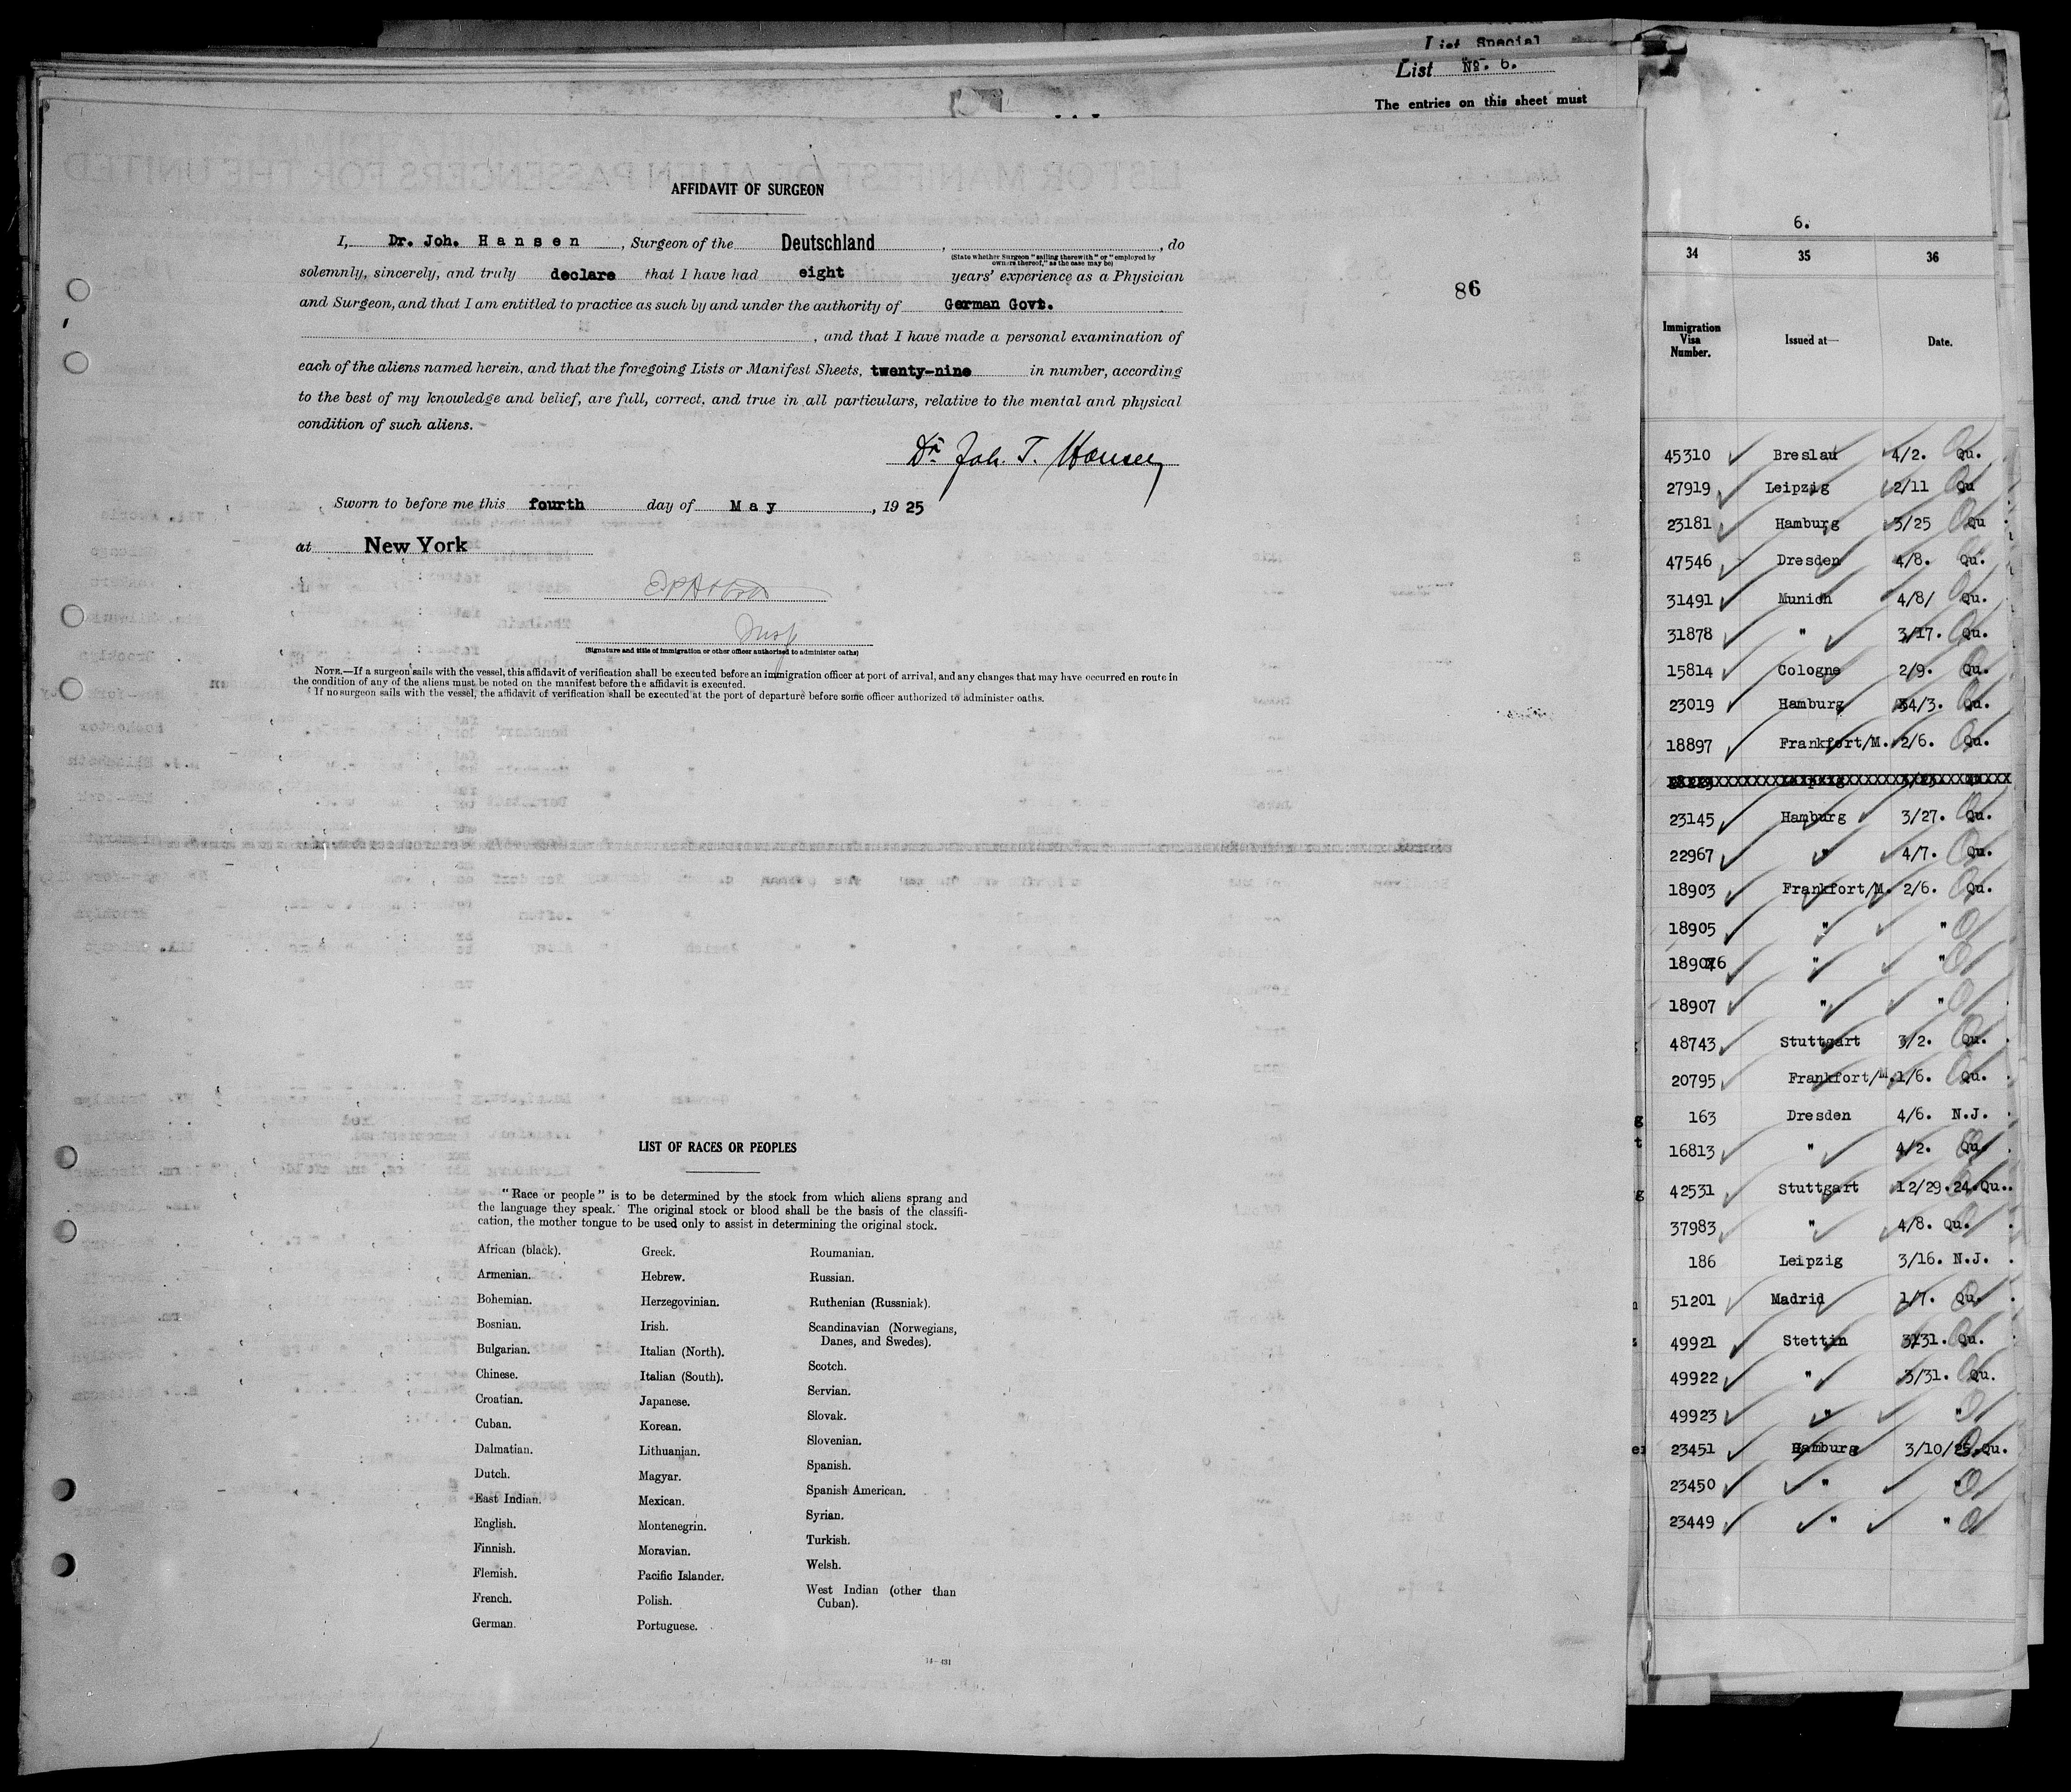 List Special
List No. 6.
The entries on this sheet must
AFFIDAVIT OF SURGEON
I, Dr. Joh. Hansen, Surgeon of the Deutschland, , do
(State whether Surgeon "sailing therewith" or "employed by
owners thereof," as the case may be)
solemnly, sincerely, and truly declare that I have had eight years' experience as a Physician
and Surgeon, and that I am entitled to practice as such by and under the authority of German Govt.
, and that I have made a personal examination of
each of the aliens named herein, and that the foregoing Lists or Manifest Sheets, twenty-nine in number, according
to the best of my knowledge and belief, are full, correct, and true in all particulars, relative to the mental and physical
condition of such aliens.
Dr. Joh. T. Hansen
Sworn to before me this fourth day of May, 1925
at New York
Insp
(Signature and title of immigration or other officer authorized to administer oaths)
NOTE.—If a surgeon sails with the vessel, this affidavit of verification shall be executed before an immigration officer at port of arrival, and any changes that may have occurred en route in
the condition of any of the aliens must be noted on the manifest before the affidavit is executed.
If no surgeon sails with the vessel, the affidavit of verification shall be executed at the port of departure before some officer authorized to administer oaths.
86
LIST OF RACES OR PEOPLES
"Race or people" is to be determined by the stock from which aliens sprang and
the language they speak. The original stock or blood shall be the basis of the classifi-
cation, the mother tongue to be used only to assist in determining the original stock.
African (black).
Armenian.
Bohemian.
Bosnian.
Bulgarian.
Chinese.
Croatian.
Cuban.
Dalmatian.
Dutch.
East Indian.
English.
Finnish.
Flemish.
French.
German.
Greek.
Hebrew.
Herzegovinian.
Irish.
Italian (North).
Italian (South).
Japanese.
Korean.
Lithuanian.
Magyar.
Mexican.
Montenegrin.
Moravian.
Pacific Islander.
Polish.
Portuguese.
Roumanian.
Russian.
Ruthenian (Russniak).
Scandinavian (Norwegians,
Danes, and Swedes).
Scotch.
Servian.
Slovak.
Slovenian.
Spanish.
Spanish American.
Syrian.
Turkish.
Welsh.
West Indian (other than
Cuban).
14—431
6.
34 35 36
Immigration
Visa
Number.
Issued at—
Date.
45310 Breslau 4/2. Qu.
27919 Leipzig 2/11 Qu
23181 Hamburg 3/25 Qu
47546 Dresden 4/8. Qu.
31491 Munich 4/8/ Qu.
31878 " 3/17. Qu.
15814 Cologne 2/9. Qu.
23019 Hamburg 4/3. Qu.
18897 Frankfort/M. 2/6. Qu.
23145 Hamburg 3/27. Qu.
22967 " 4/7. Qu.
18903 Frankfort/M. 2/6. Qu.
18905 " "
18906 " "
18907 " "
48743 Stuttgart 3/2. Qu.
20795 Frankfort/M. 1/6. Qu.
163 Dresden 4/6. N.J.
16813 " 4/2. Qu.
42531 Stuttgart 12/29.24.Qu.
37983 " 4/8. Qu.
186 Leipzig 3/16. N.J.
51201 Madrid 1/7. Qu.
49921 Stettin 3/31. Qu.
49922 " 3/31. Qu.
49923 " "
23451 Hamburg 3/10/25.Qu.
23450 " "
23449 " "